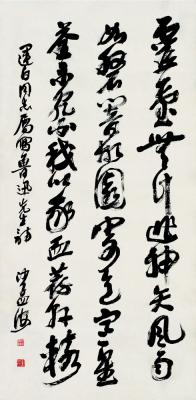 靈臺無計逃神矢風雨
如磐闇故園寄意寒星
荃不察我以我血薦軒轅
同志屬寫魯迅先生詩 沙孟海